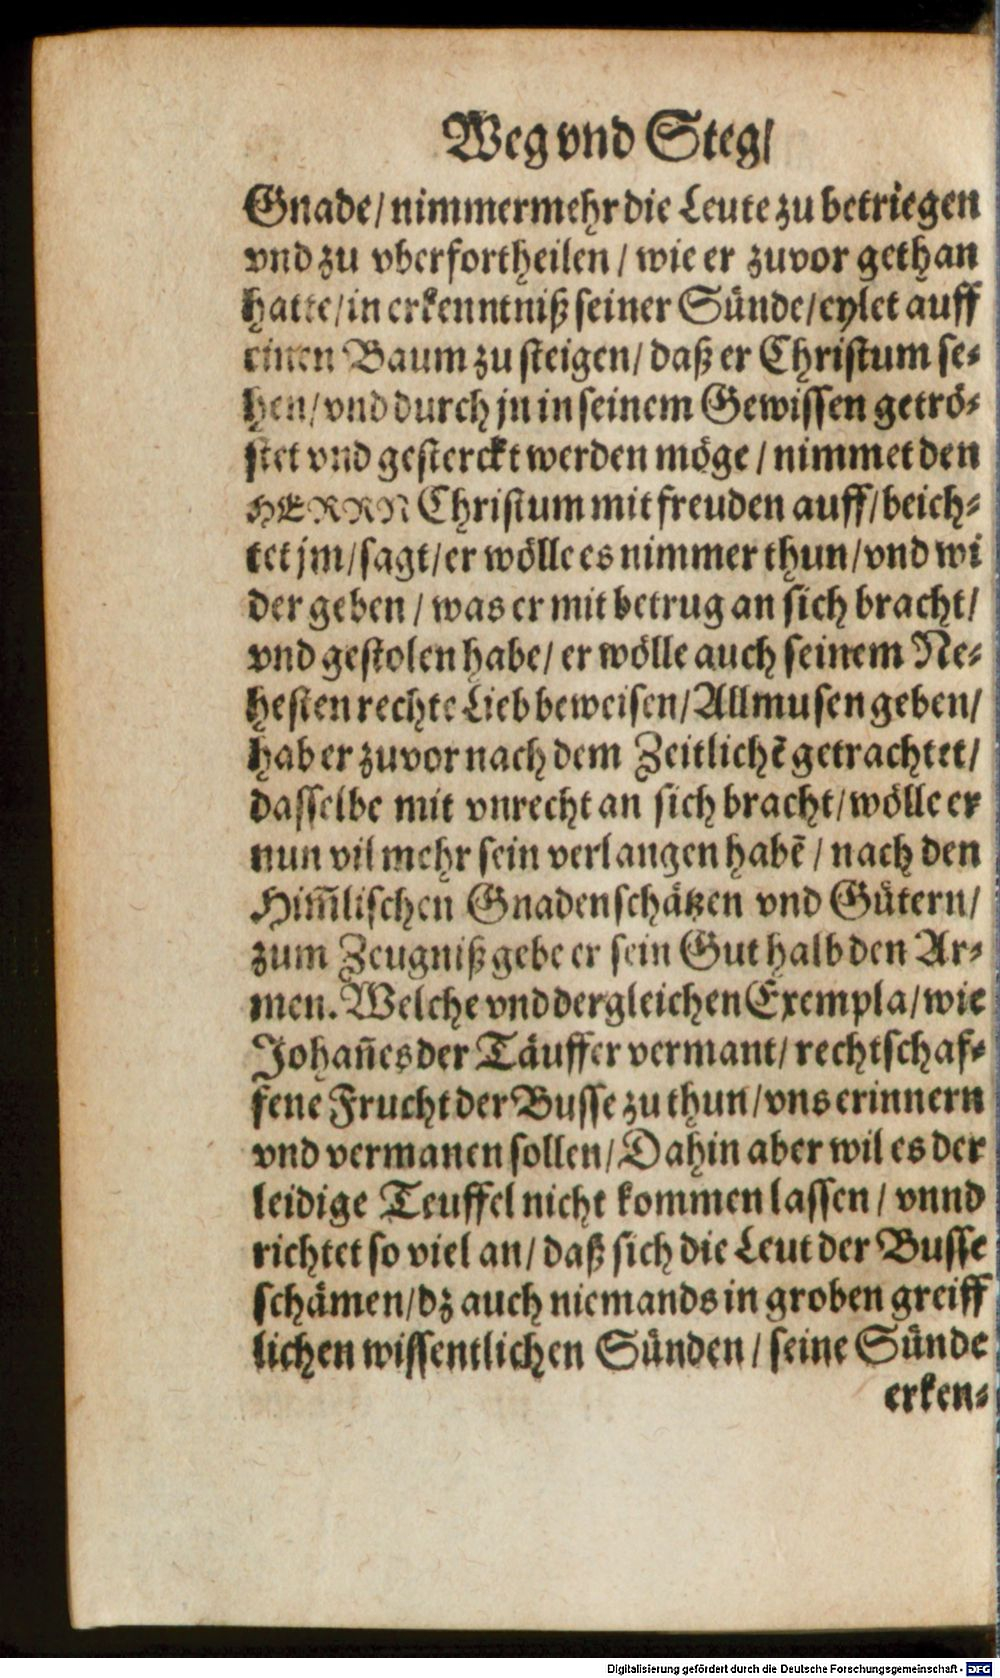 Weg vnd Steg/
Gnade/ nimmermehr die Leute zu betriegen
vnd zu vberfortheilen/ wie er zuvor gethan
hatte/ in erkenntniß seiner Sünde/ eylet auff
einen Baum zu steigen/ daß er Christum se-
hen/ vnd durch jn in seinem Gewissen getrö-
stet vnd gesterckt werden möge/ nimmet den
HERRN Christum mit freuden auff/ beich-
tet jm/ sagt/ er wölle es nimmer thun/ vnd wi
der geben/ was er mit betrug an sich bracht/
vnd gestolen habe/ er wölle auch seinem Ne-
hesten rechte Lieb beweisen/ Allmusen geben/
hab er zuvor nach dem Zeitlichē getrachtet/
dasselbe mit vnrecht an sich bracht/ wölle er
nun vil mehr sein verlangen habē/ nach den
Him̃lischen Gnadenschätzen vnd Gütern/
zum Zeugniß gebe er sein Gut halb den Ar-
men. Welche vnd dergleichen Exempla/ wie
Johañes der Täuffer vermant/ rechtschaf-
fene Frucht der Busse zu thun/ vns erinnern
vnd vermanen sollen/ Dahin aber wil es der
leidige Teuffel nicht kommen lassen/ vnnd
richtet so viel an/ daß sich die Leut der Busse
schämen/ dz auch niemands in groben greiff
lichen wissentlichen Sünden/ seine Sünde
erken-
Digitalisierung gefördert durch die Deutsche Forschungsgemeinschaft - DFG